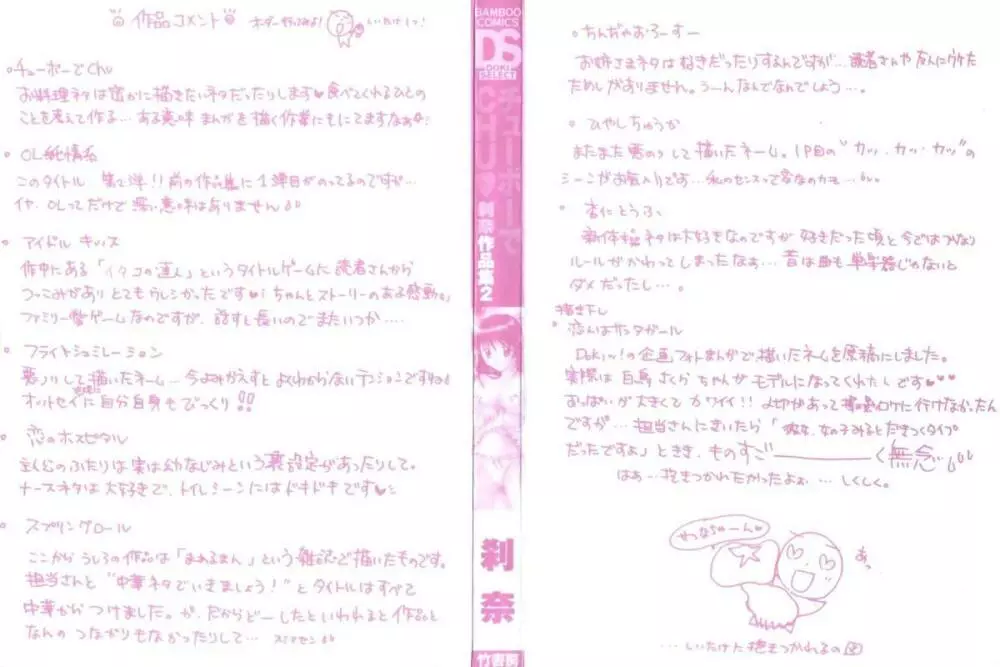 作品コメント
チューボーでChu
お料理ネタは密かに描きたいネタだったりします♥食べてくれるひとの
ことを考えて作る…ある意味まんがを描く作業にもにてますなぁ
OL純情系
このタイトル 第2弾!!前の作品集に1弾目がのってるのですが…
イヤ、OLってだけで深い意味はありません
アイドル キッス
作中にある「イタコの達人」というタイトルゲームに読者さんから
つっこみがあり とてもウレシかったです♥ちゃんとストーリーのある感動
ファミリー型ゲームなのですが、話すと長いのでまたいつか…
フライトシュミレーション
悪ノリして描いたネーム…今よみかえすと よくわからないテンションですね
オットセイに自分自身もびっくり!!
恋のホスピタル
主人公のふたりは実は幼なじみという裏設定があったりして。
ナースネタは大好きで、トイレシーンにはドキドキです♥
スプリングロール
ここから うしろの作品は「まぁるまん」という雑誌で描いたものです。
担当さんと"中華ネタでいきましょう!"と タイトルはすべて
中華からつけました。が、だからどーしたといわれると作品と
なんの つながりもなかったりして… スミマセン
BAMBOO
COMICS
DS
DOKI
SELECT
チューボーで
CHU♥
刹奈作品集2
刹奈
竹書房
ちんぢゃおろーすー
お姉さまネタはすきだったりするんですが…読者さんや友人にウケた
ためしがありません。うーんなんでなんでしょう…。
ひやしちゅうか
またまた悪のりして描いたネーム。1P目の"カッ・カッ・カッ"の
シーンがお気入りです…私のセンスって変なのかも…
杏仁とうふ
新体操ネタは大好きなのですが 好きだった頃と今ではかなり
ルールがかわってしまったなぁ…昔は曲も単楽器じゃないと
ダメだったし…。
描き下し
恋人はサンタガール
Doki!の企画フォトまんがで描いたネームを原稿にしました。
実際は白鳥さくらちゃんがモデルになってくれたんです♥♥♥
おっぱいが大きくてカワイイ!!〆切があって撮影ロケに行けなかったん
ですが…担当さんにきいたら「彼女、女の子みるとだきつくタイプ
だったですよ」ときき、ものすご――――く無念
はぁ…抱きつかれたかったよぉ…しくしく。
せつなちゃーん♥
あっ
…しいたけに抱きつかれるの図